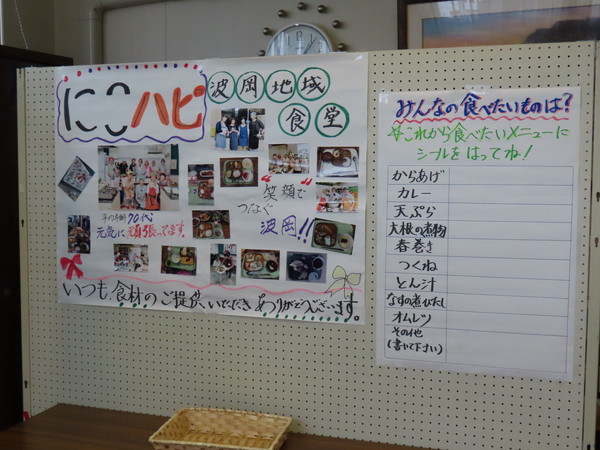 にこハピ
波岡地域
食堂
"笑顔"で
つなぐ
波岡!!
平均年齢70代
元気に頑張ってます
いつも食材のご提供いただきありがとうございます。
みんなの食べたいものは?
これから食べたいメニューに
シールをはってね!
からあげ
カレー
天ぷら
大根の煮物
春巻き
つくね
とん汁
なすの煮びたし
オムレツ
その他
(書いて下さい)